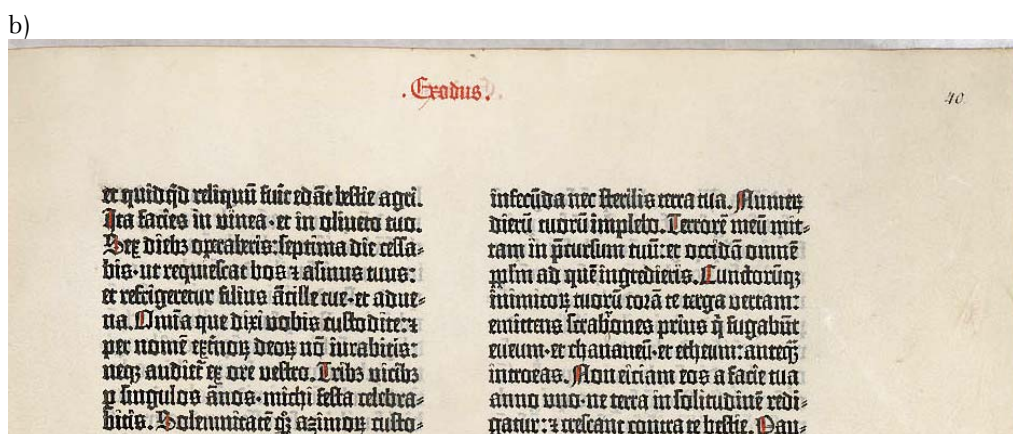 b)
.Exodus.
40
et quidq̇d reliquū fuīt edāt bestie agri.
Ita facies in vinea·et in oliveto tuo.
Sex diebꝫ operaberis: septima die cessa⸗
bis·ut requiescat bos ⁊ asinus tuus:
et refrigeretur filius ācille tue·et adve⸗
na. Om̄ia que dixi vobis custodite: ⁊
per nomē ext̄noꝝ deoꝝ nō iurabitis:
neqꝫ audiet̄ ex ore vestro. Tribꝫ vicibꝫ
ꝑ singulos ānos·michi festa celebra⸗
bitis. Solemnitatē q̄ꝫ azimoꝝ custo⸗
infecūda nec sterilis terra tua. Numeꝝ
dierū tuorū implebo. Terrorē meū mit⸗
tam in p̄cursum tuū: et occidā omnē
pp̄lm ad quē ingredieris. Cunctorūqꝫ
inimicoꝝ tuorū corā te terga vertam:
emittens scrabones prius q̄ fugabūt
eveum·et chananeū·et etheum: anteq̄ꝫ
introeas. Non eiciam eos a facie tua
anno uno·ne terra in solitudinē redi⸗
gatur: ⁊ crescant contra te bestie. Pau⸗